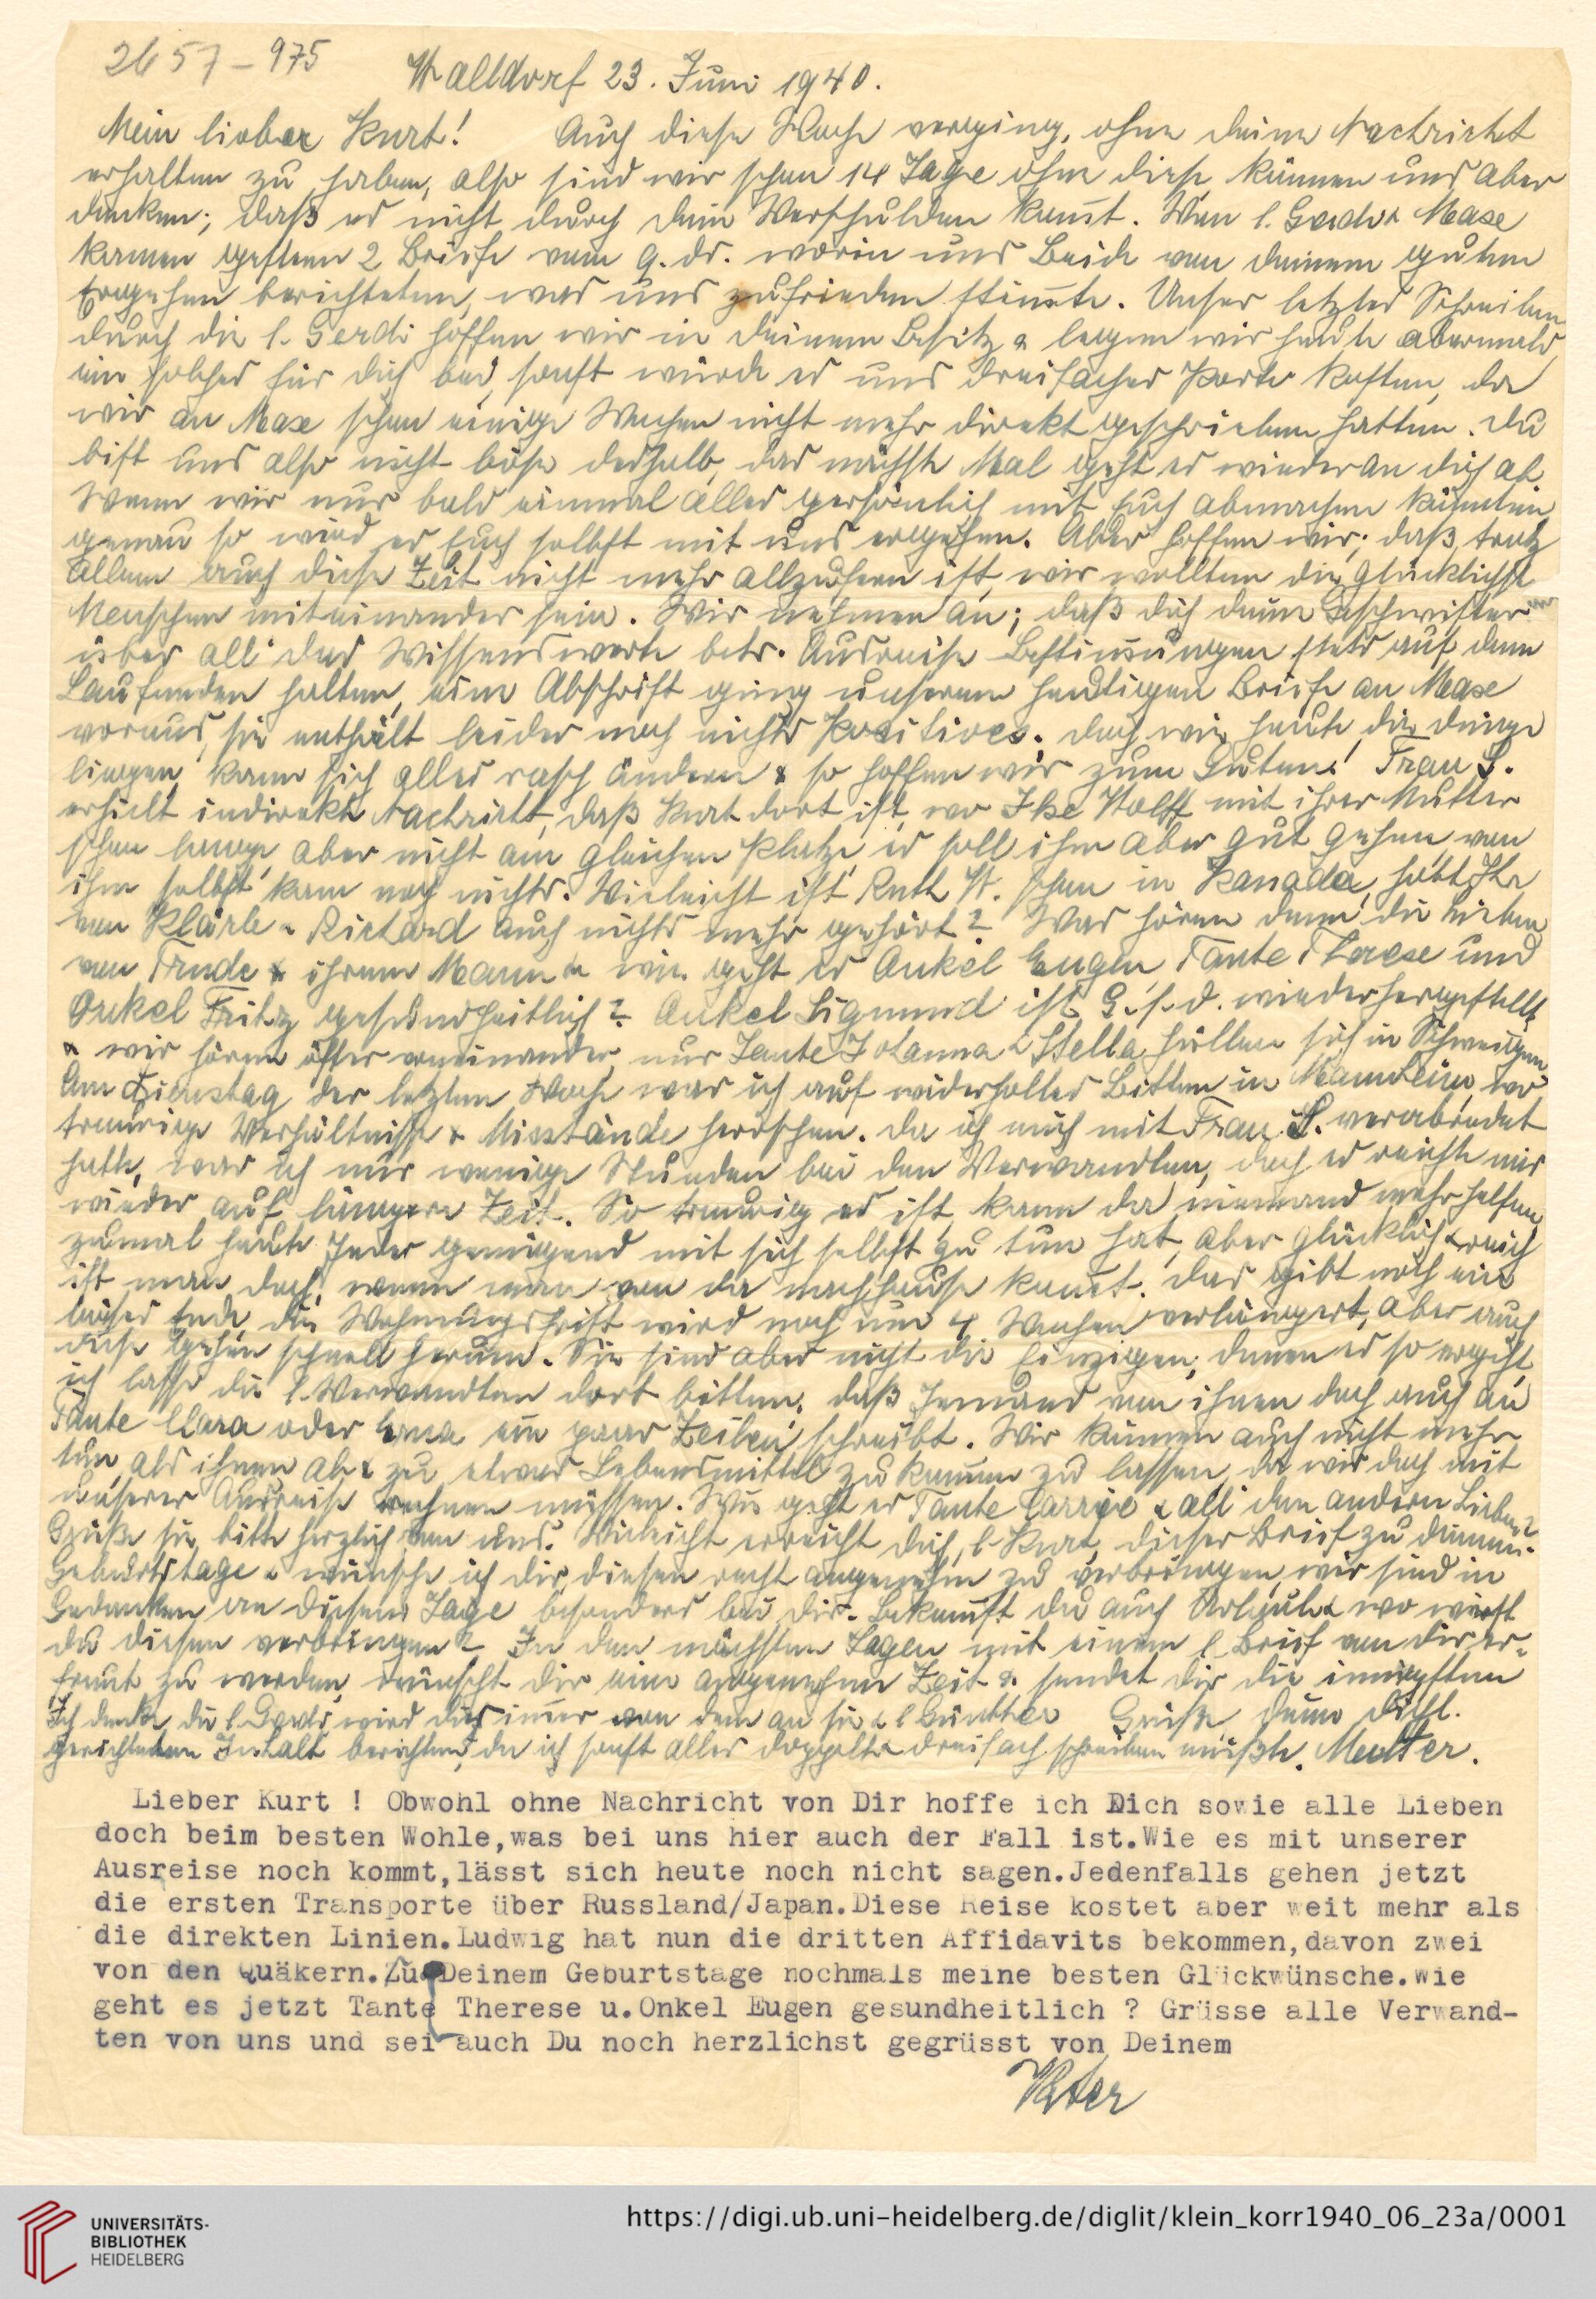 2657-975
Walldorf 23. Juni 1940.
Mein lieber Kurt! Auch diese Woche verging, ohne deine Nachricht
erhalten zu haben, also sind wir schon 14 Tage ohne diese, können uns aber
denken; daß es nicht durch dein Verschulden kom̄t. Von l. Gerdi & Max
kamen gestern 2 Briefe vom 9. ds. worin uns Beide von deinem guten
Ergehen berichteten, was uns zufrieden stim̄te. Unser letztes Schreiben
durch die l. Gerdi hoffen wir in deinem Besitz & legen wir heute abermals
ein solches für dich bei, sonst würde es uns dreifaches Porto kosten, da
wir an Max schon einige Wochen nicht mehr direkt geschrieben hatten. Du
bist uns also nicht böse deshalb, das nächste Mal geht es wieder an dich ab.
Wenn wir nur bald einmal alles persönlich mit Euch abmachen könnten,
genau so wird es Euch selbst mit uns ergehen. Aber hoffen wir; daß trotz
allem auch diese Zeit nicht mehr allzufern ist, wir wollten die glücklichst
Menschen miteinander sein. Wir nehmen an; daß dich deine Geschwister
über all' das Wissenswerte betr. Ausreise-Bestim̄ungen stets auf dem
Laufenden halten, eine Abschrift ging unserem heutigen Briefe an Max
voraus, sie enthält leider noch nichts Positives, doch wie heute die Dinge
liegen, kann sich alles rasch ändern & so hoffen wir zum Guten! Frau S.
erhielt indirekt Nachricht, daß Kurt dort ist, wo Ilse Wolff mit ihrer Mutter
schon lange, aber nicht am gleichen Platze, es soll ihm aber gut gehen, von
ihm selbst kam noch nichts. Vieleicht ist Ruth W. schon in Kanada, habt Ihr
von Klärle & Richard auch nichts mehr gehört? Was hören denn die Lieben
von Trude & ihrem Mann & wie geht es Onkel Eugen, Tante Therese und
Onkel Fritz gesundheitlich? Onkel Sigmund ist G. s. d. wiederhergestellt
& wir hören öfter voneinander, nur Tante Johanna & Stella hüllen sich in Schweigen.
Am Dienstag der letzten Woche war ich auf widerholtes Bitten in Mannheim, wo
traurige Verhältnisse & Misstände herrschen. Da ich mich mit Frau S. verabredet
hatte, war ich nur wenige Stunden bei den Verwandten, doch es reichte mir
wieder auf längere Zeit. So traurig es ist, kann da niemand mehr helfen,
zumal heute Jeder genügend mit sich selbst zu tun hat, aber glücklich & reich
ist man doch, wenn man von da nachhause kom̄t. Das gibt noch ein
böses Ende, die Wohnungsfrist wird noch um 4 Wochen verlängert, aber auch
diese gehen schnell herum. Sie sind aber nicht die Einzigen, denen es so ergeht,
ich lasse die l. Verwandten dort bitten, daß Jemand von ihnen doch auch an
Tante Clara oder Erna ein paar Zeilen schreibt. Wir können auch nicht mehr
tun, als ihnen ab & zu etwas Lebensmittel zukom̄en zu lassen, da wir doch mit
unserer Ausreise rechnen müssen. Wie geht es Tante Carrie & all' den andern Lieben?
Grüße sie bitte herzlich von uns. Vieleicht erreicht dich, l. Kurt, dieser Brief zu deinem
Geburtstage & wünsche ich dir, diesen recht angenehm zu verbringen, wir sind in
Gedanken an diesem Tage besonders bei dir. Bekom̄st du auch Urlaub & wo wirst
du diesen verbringen? In den nächsten Tagen mit einem l. Brief von dir er-
freut zu werden, wünscht dir eine angenehme Zeit & sendet dir die innigsten
Ich denke, die l. Gerdi wird dir im̄er von dem an sie & l. Günther Grüße deine dichl.
gerichteten Inhalt berichten, da ich sonst alles doppelt & dreifach schreiben müßte. Mutter.
Lieber Kurt ! Obwohl ohne Nachricht von Dir hoffe ich Dich sowie alle Lieben
doch beim besten Wohle,was bei uns hier auch der Fall ist.Wie es mit unserer
Ausreise noch kommt,lässt sich heute noch nicht sagen.Jedenfalls gehen jetzt
die ersten Transporte über Russland/Japan.Diese Reise kostet aber weit mehr als
die direkten Linien.Ludwig hat nun die dritten Affidavits bekommen,davon zwei
von den Quäkern.Zu Deinem Geburtstage nochmals meine besten Glückwünsche.Wie
geht es jetzt Tante Therese u.Onkel Eugen gesundheitlich ? Grüsse alle Verwand-
ten von uns und sei auch Du noch herzlichst gegrüsst von Deinem
Vater
UNIVERSITÄTS-
BIBLIOTHEK
HEIDELBERG
https://digi.ub.uni-heidelberg.de/diglit/klein_korr1940_06_23a/0001